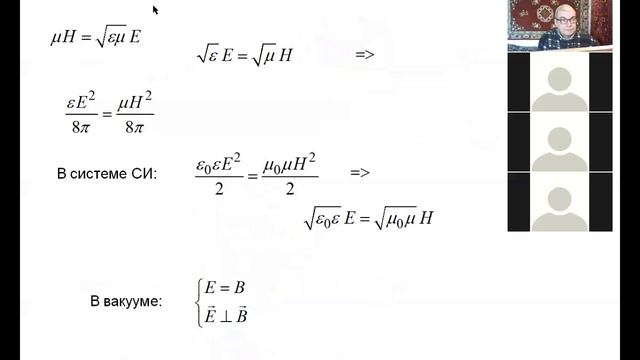 μH = √εμ E
√ε E = √μ H =>
εE²/8π = μH²/8π
В системе СИ: ε₀εE²/2 = μ₀μH²/2 =>
√ε₀ε E = √μ₀μ H
В вакууме: { E = B
E⃗ ⊥ B⃗